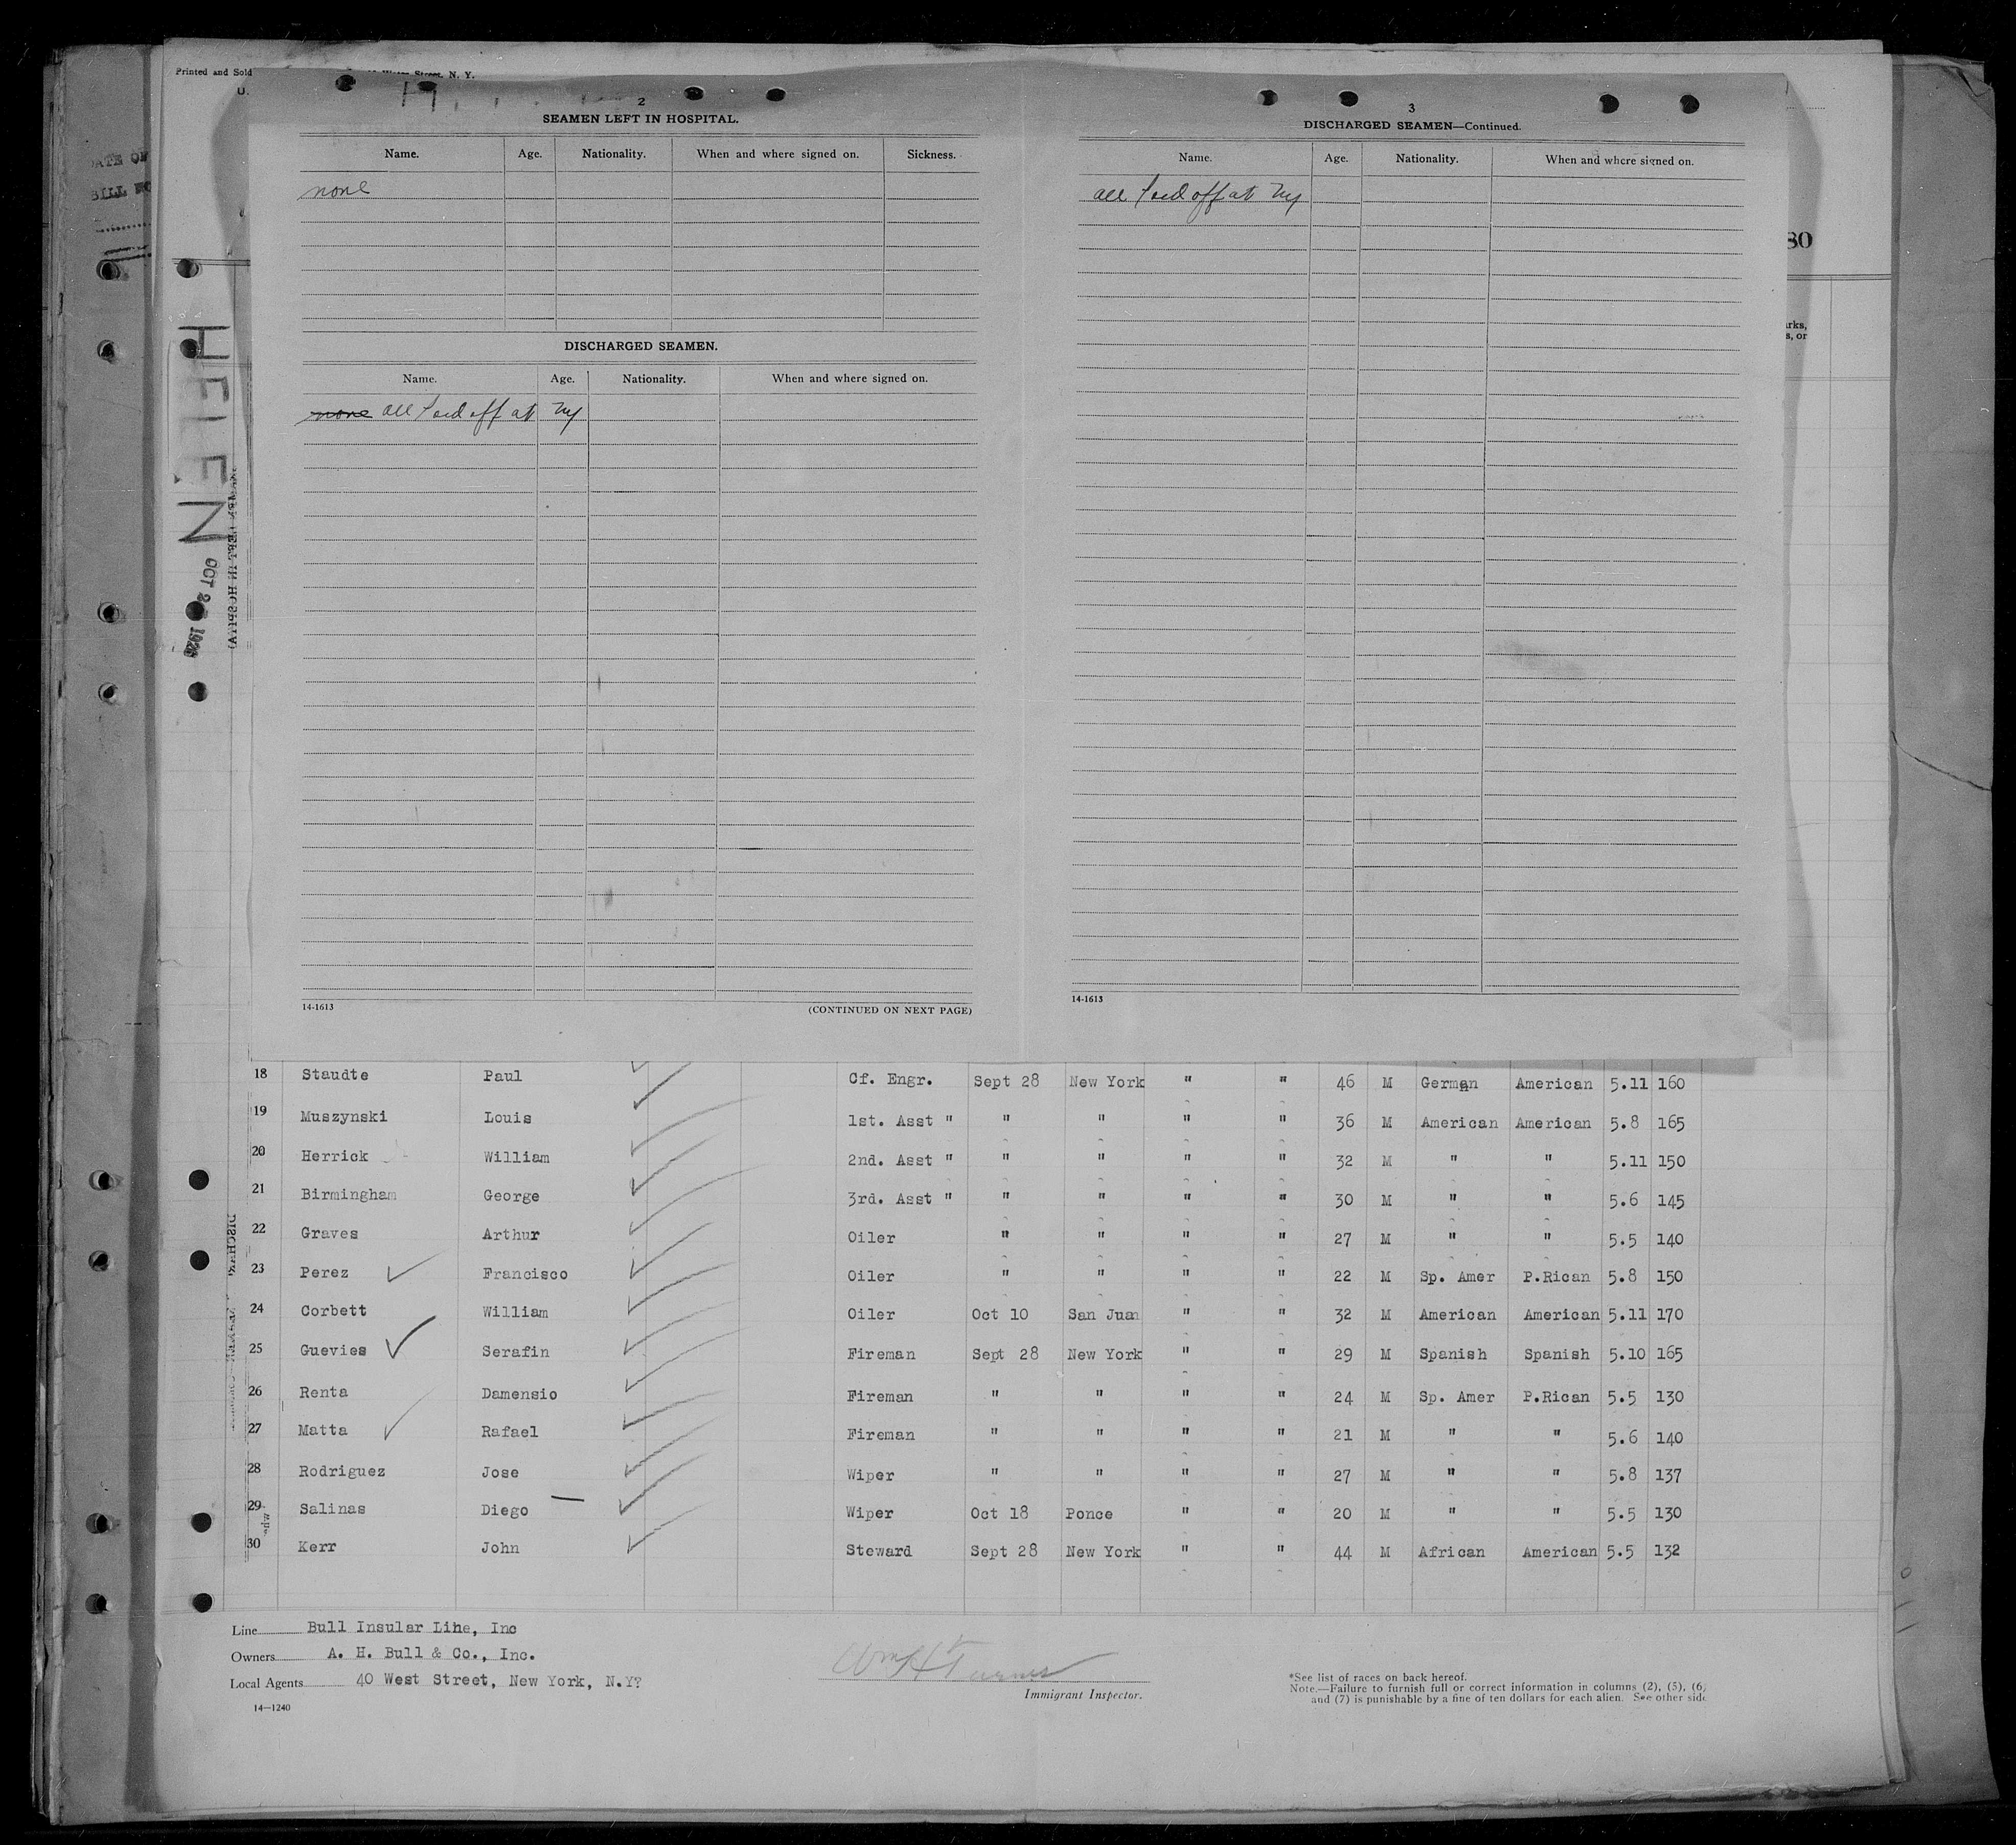 Printed and Sold
Street, N. Y.
U.
2
SEAMEN LEFT IN HOSPITAL.
Name. Age. Nationality. When and where signed on. Sickness.
none
DISCHARGED SEAMEN.
Name. Age. Nationality. When and where signed on.
none all paid off at Ny
14-1613 (CONTINUED ON NEXT PAGE)
3
DISCHARGED SEAMEN—Continued.
Name. Age. Nationality. When and where signed on.
all paid off at Ny
14-1613
80
rks,
s, or
HELEN
OCT 2
18 Staudte Paul Cf. Engr. Sept 28 New York " " 46 M German American 5.11 160
19 Muszynski Louis 1st. Asst " " " " " 36 M American American 5.8 165
20 Herrick William 2nd. Asst " " " " " 32 M " " 5.11 150
21 Birmingham George 3rd. Asst " " " " " 30 M " " 5.6 145
22 Graves Arthur Oiler " " " " 27 M " " 5.5 140
23 Perez Francisco Oiler " " " " 22 M Sp. Amer P.Rican 5.8 150
24 Corbett William Oiler Oct 10 San Juan " " 32 M American American 5.11 170
25 Guevies Serafin Fireman Sept 28 New York " " 29 M Spanish Spanish 5.10 165
26 Renta Damensio Fireman " " " " 24 M Sp. Amer P.Rican 5.5 130
27 Matta Rafael Fireman " " " " 21 M " " 5.6 140
28 Rodriguez Jose Wiper " " " " 27 M " " 5.8 137
29 Salinas Diego Wiper Oct 18 Ponce " " 20 M " " 5.5 130
30 Kerr John Steward Sept 28 New York " " 44 M African American 5.5 132
Line Bull Insular Lihe, Inc
Owners A. H. Bull & Co., Inc.
Local Agents 40 West Street, New York, N.Y?
14—1240
Wm H Turner
Immigrant Inspector.
*See list of races on back hereof.
Note.—Failure to furnish full or correct information in columns (2), (5), (6)
and (7) is punishable by a fine of ten dollars for each alien. See other side